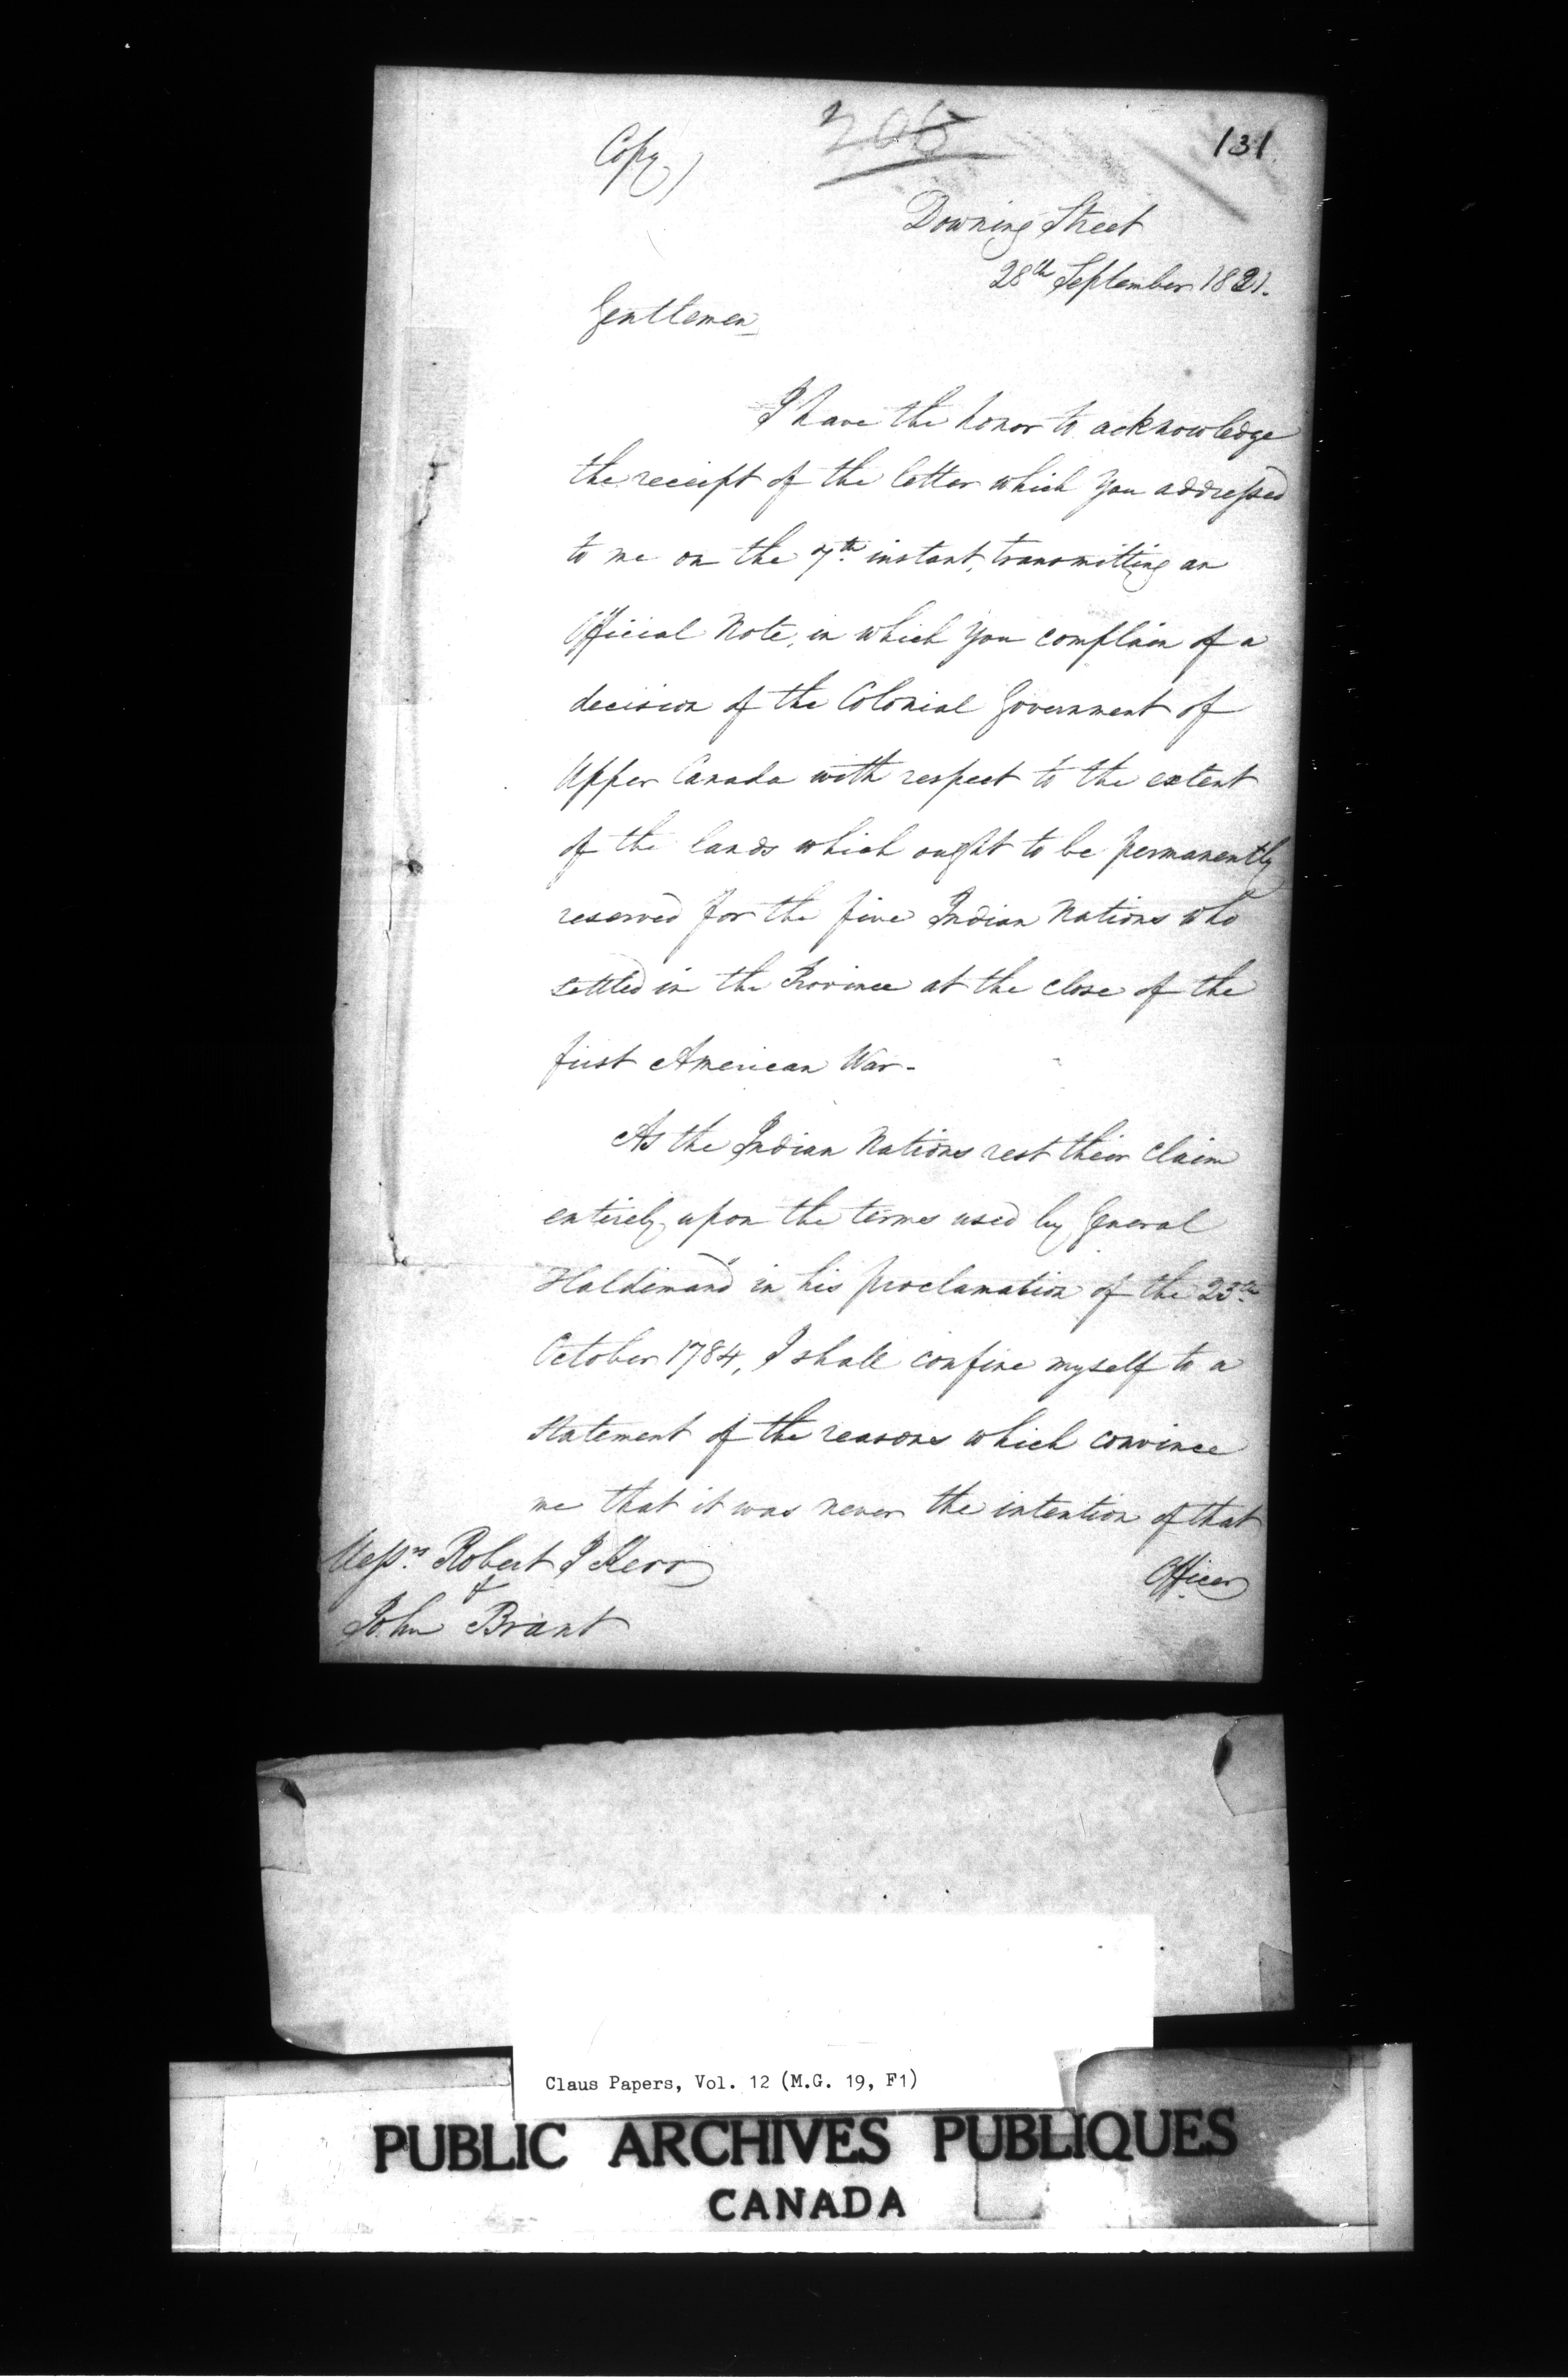 Copy)
206
131
Downing Street
28th September 1821.
Gentlemen
I have the honor to acknowledge
the receipt of the letter which you addressed
to me on the 7th instant, transmitting an
Official Note, in which you complain of a
decision of the Colonial Government of
Upper Canada with respect to the extent
of the lands which ought to be permanently
reserved for the five Indian Nations who
settled in the Province at the close of the
first American War -
As the Indian Nations rest their claim
entirely upon the terms used by General
Haldimand in his proclamation of the 25th
October 1784, I shall confine myself to a
statement of the reasons which convince
me that it was never the intention of that
Officer
Messrs Robert J Kerr
&
John Brant
Claus Papers, Vol. 12 (M.G. 19, F1)
PUBLIC ARCHIVES PUBLIQUES
CANADA